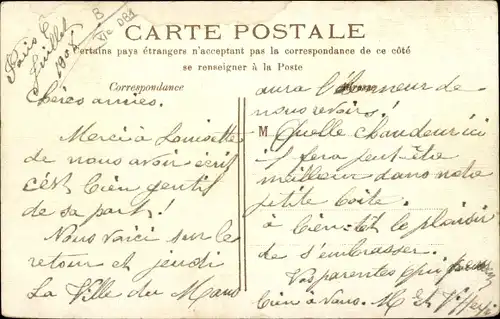 Paris 6
Juillet
1905
B
Vie 089
CARTE POSTALE
Certains pays étrangers n'acceptent pas la correspondance de ce côté
se renseigner à la Poste
Correspondance
Chères amies.
Merci à Louisette
de nous avoir écrit
c'est bien gentif
de sa part!
Nous voici sur le
retour et jeudi
La Ville du Mans
aura l'honneur de
nous revoir!
M Quelle chaudeur ici
il fera peut-être
meilleur dans notre
petite boite.
à bientôt le plaisir
de s'embrasser.
Vos parentes qui
bien à vous. M et